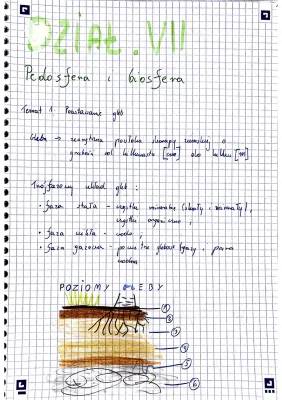 DZIAŁ. VII
Pedosfera i biosfera
Temat 1. Powstawanie gleb
Gleba → zewnętrzna powłoka skorupy ziemskiej, o
grubości od kilkunastu [cm] do kilku [m]
Trójfazowy układ gleb:
• faza stała - cząstki mineralne (skały i minerały),
cząstki organiczne,
• faza ciekła - woda,
• faza gazowa - powietrze glebowe (gazy) i para
wodna
POZIOMY GLEBY
1
2
3
4
5
6